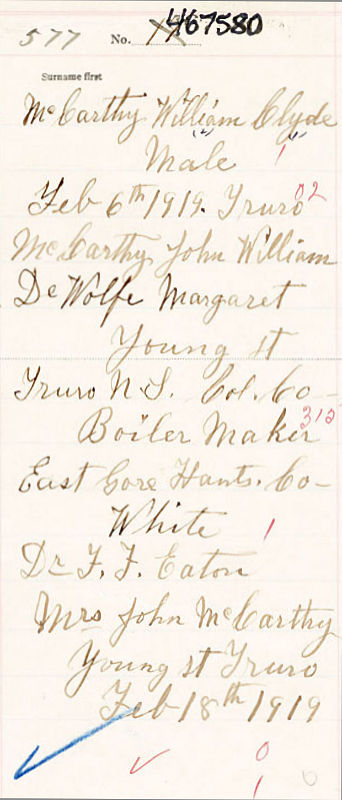 577 No. 467580
Surname first
McCarthy William Clyde
Male 1
Feb 6th 1919. Truro 02
McCarthy John William
DeWolfe Margaret
Young st
Truro N.S. Col. Co-
Boiler Maker 312
East Gore Hants. Co-
White 1
Dr F. F. Eaton
Mrs John McCarthy
Young st Truro
Feb 18th 1919
0
1 0